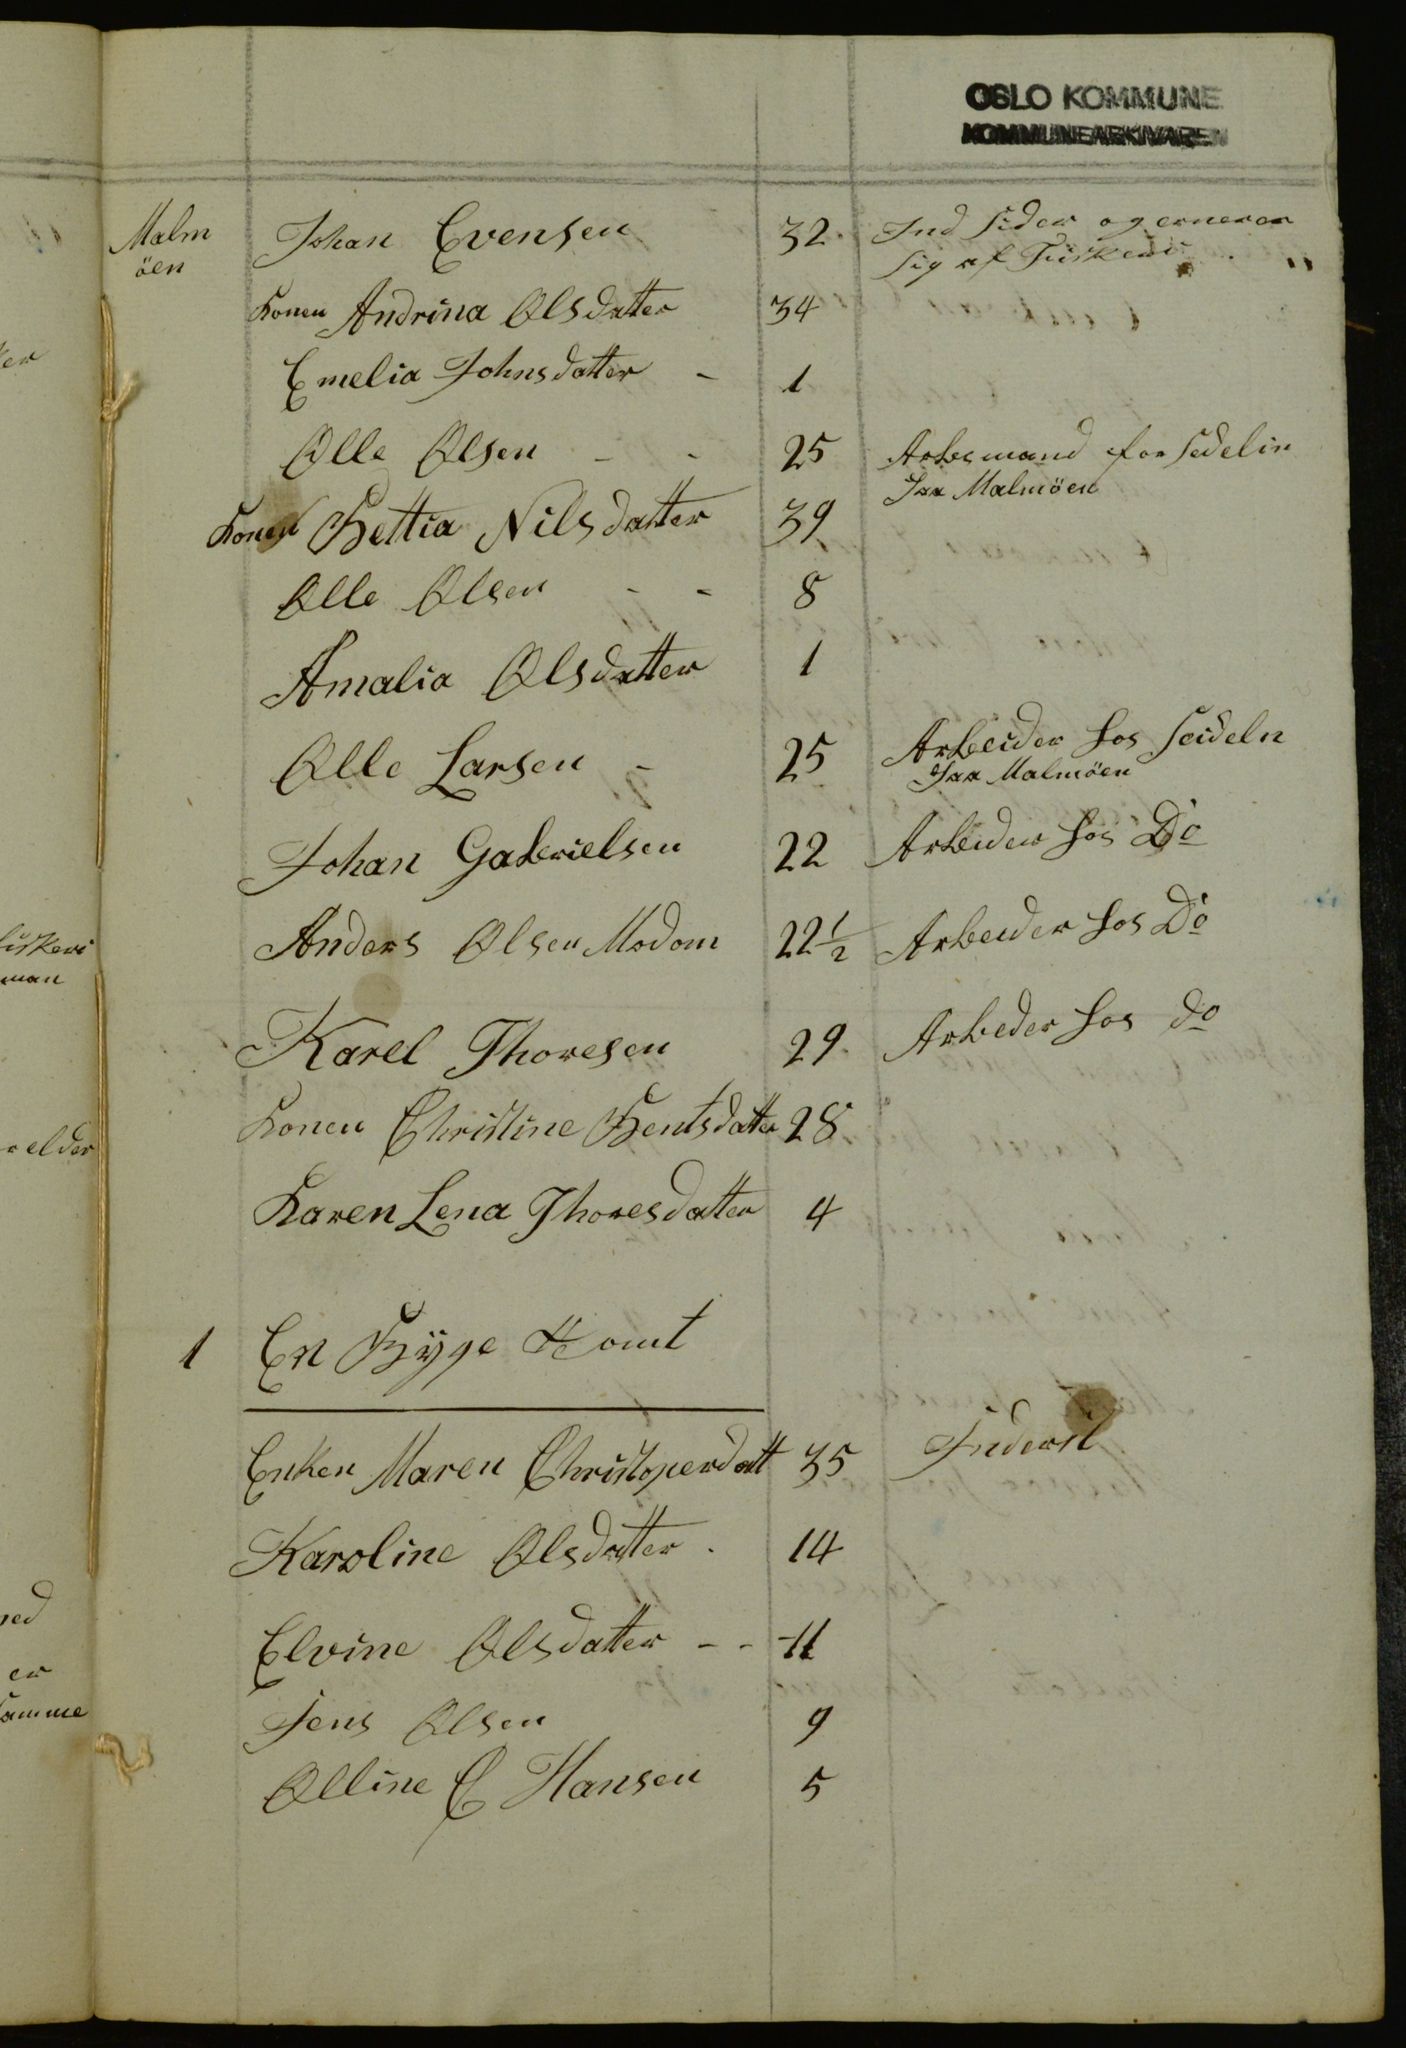 OSLO KOMMUNE
KOMMUNEARKIVAREN
Malm
öen
Johan Evensen 32 Ind Sider og ernerer
sig af Fiskeri
Konen Andrina Olsdatter 34
Emelia Johnsdatter - 1
Olle Olsen - - 25 Arbesmand for Sedelin
Paa Malmöen
Konen Bettia Nilsdatter 39
Olle Olsen - - 8
Amalia Olsdatter 1
Olle Larsen - 25 Arbeider hos Seideln
Paa Malmöen
Johan Gabrielsen 22 Arbeider hos Do
Anders Olsen Modom 22 1/2 Arbeider hos Do
Karel Thoresen 29 Arbeder hos do
Konen Christine Bentsdatter 28
Karen Lena Thoresdatter 4
1 En Byge Tomt
Enken Maren Christoperdatt 35 Inderst
Karoline Olsdatter . 14
Elvine Olsdatter - - 11
Jens Olsen 9
Olline C Hansen 5
ker
fiskeri
man
elder
ned
er
samme